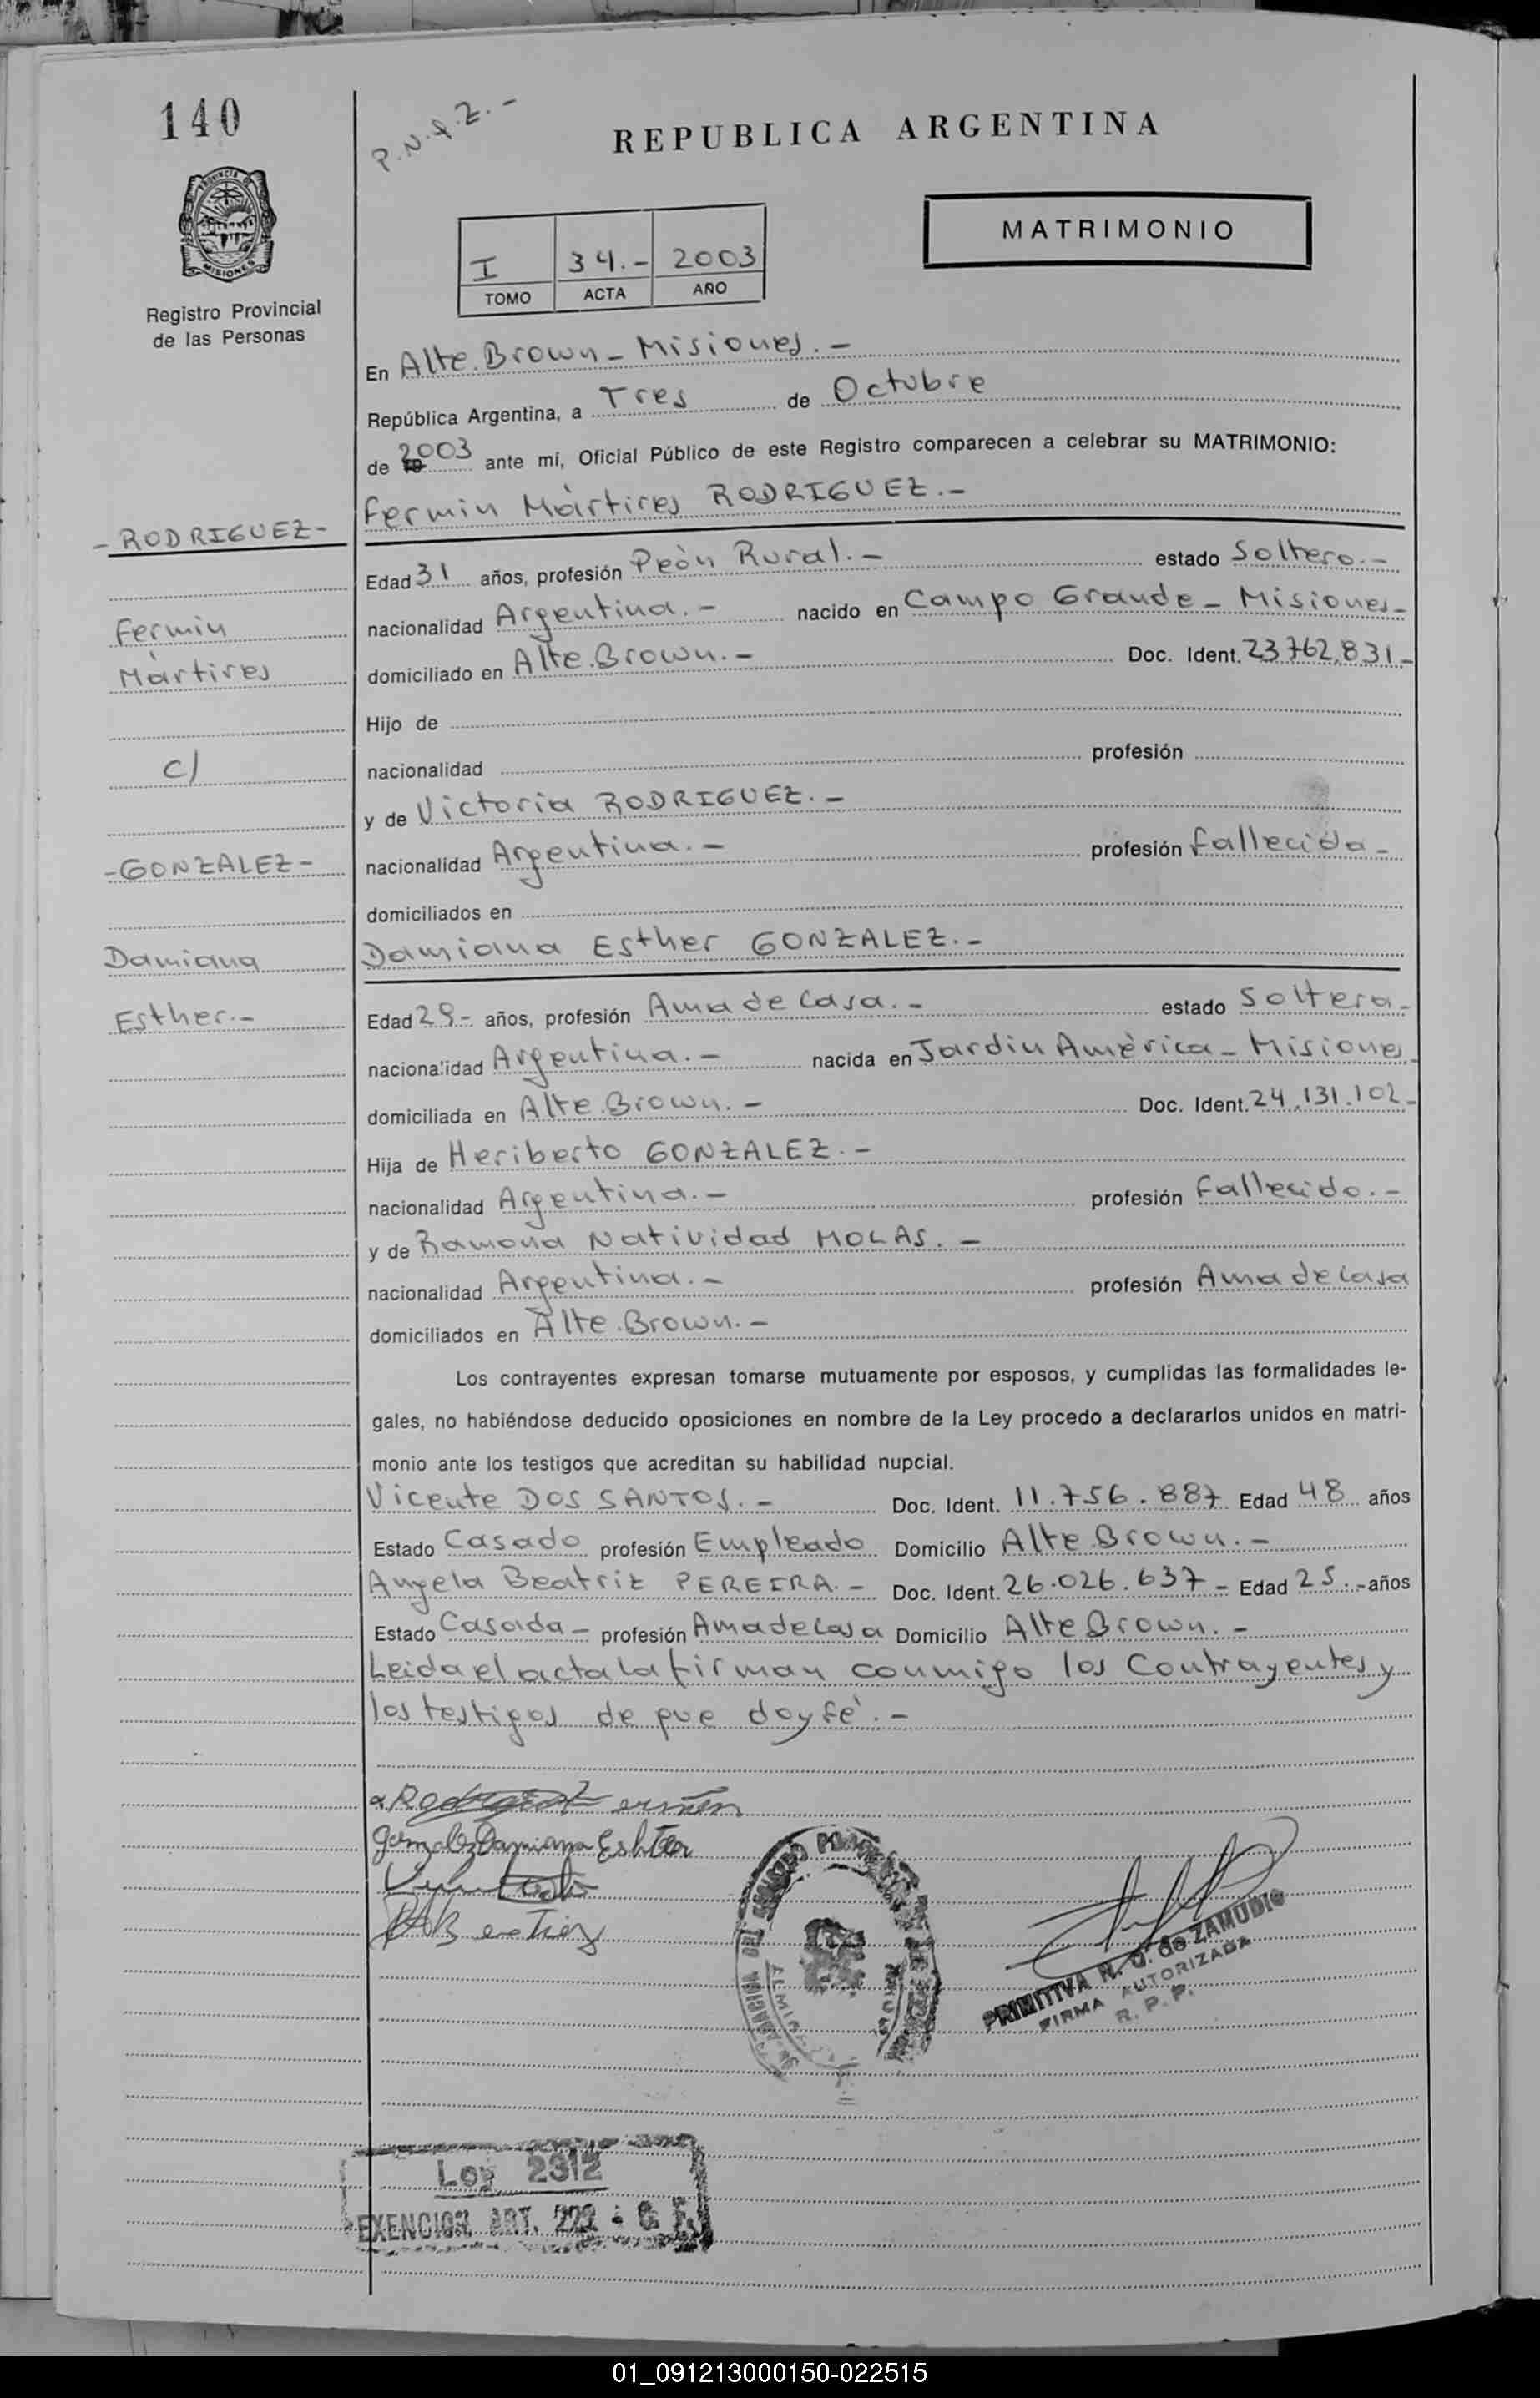 140
P.N.y.Z.-
REPUBLICA ARGENTINA
MATRIMONIO
PROVINCIA DE
MISIONES
Registro Provincial
de las Personas
I 34.- 2003
TOMO ACTA AÑO
En Alte.Brown - Misiones.-
República Argentina, a Tres de Octubre
de 2003 ante mí, Oficial Público de este Registro comparecen a celebrar su MATRIMONIO:
Fermin Mártires RODRIGUEZ.-
- RODRIGUEZ -
Edad 31 años, profesión Peòn Rural.- estado Soltero.-
Fermin
nacionalidad Argentina.- nacido en Campo Grande - Misiones-
Mártires
domiciliado en Alte.Brown.- Doc. Ident. 23762.831-
Hijo de
c/
nacionalidad profesión
y de Victoria RODRIGUEZ.-
- GONZALEZ -
nacionalidad Argentina.- profesión fallecida-
domiciliados en
Damiana
Damiana Esther GONZALEZ.-
Esther.-
Edad 29- años, profesión Ama de Casa.- estado Soltera-
nacionalidad Argentina.- nacida en Jardin Amèrica - Misiones-
domiciliada en Alte.Brown.- Doc. Ident. 24.131.102-
Hija de Heriberto GONZALEZ.-
nacionalidad Argentina.- profesión Fallecido.-
y de Ramona Natividad MOLAS.-
nacionalidad Argentina.- profesión Ama de Casa
domiciliados en Alte.Brown.-
Los contrayentes expresan tomarse mutuamente por esposos, y cumplidas las formalidades le-
gales, no habiéndose deducido oposiciones en nombre de la Ley procedo a declararlos unidos en matri-
monio ante los testigos que acreditan su habilidad nupcial.
Vicente DOS SANTOS.- Doc. Ident. 11.756.887 Edad 48 años
Estado Casado profesión Empleado Domicilio Alte Brown.-
Angela Beatriz PEREIRA.- Doc. Ident. 26.026.637- Edad 25.- años
Estado Casada- profesión Ama de Casa Domicilio Alte Brown.-
Leida el acta la firman conmigo los Contrayentes y
los testigos de que doy fé.-
Gonzalez Damiana Eshter
PRIMITIVA N. Q. de ZAMUDIO
FIRMA AUTORIZADA
R. P. P.
Ley 2312
EXENCION ART. 222 - C. F.
01_091213000150-022515